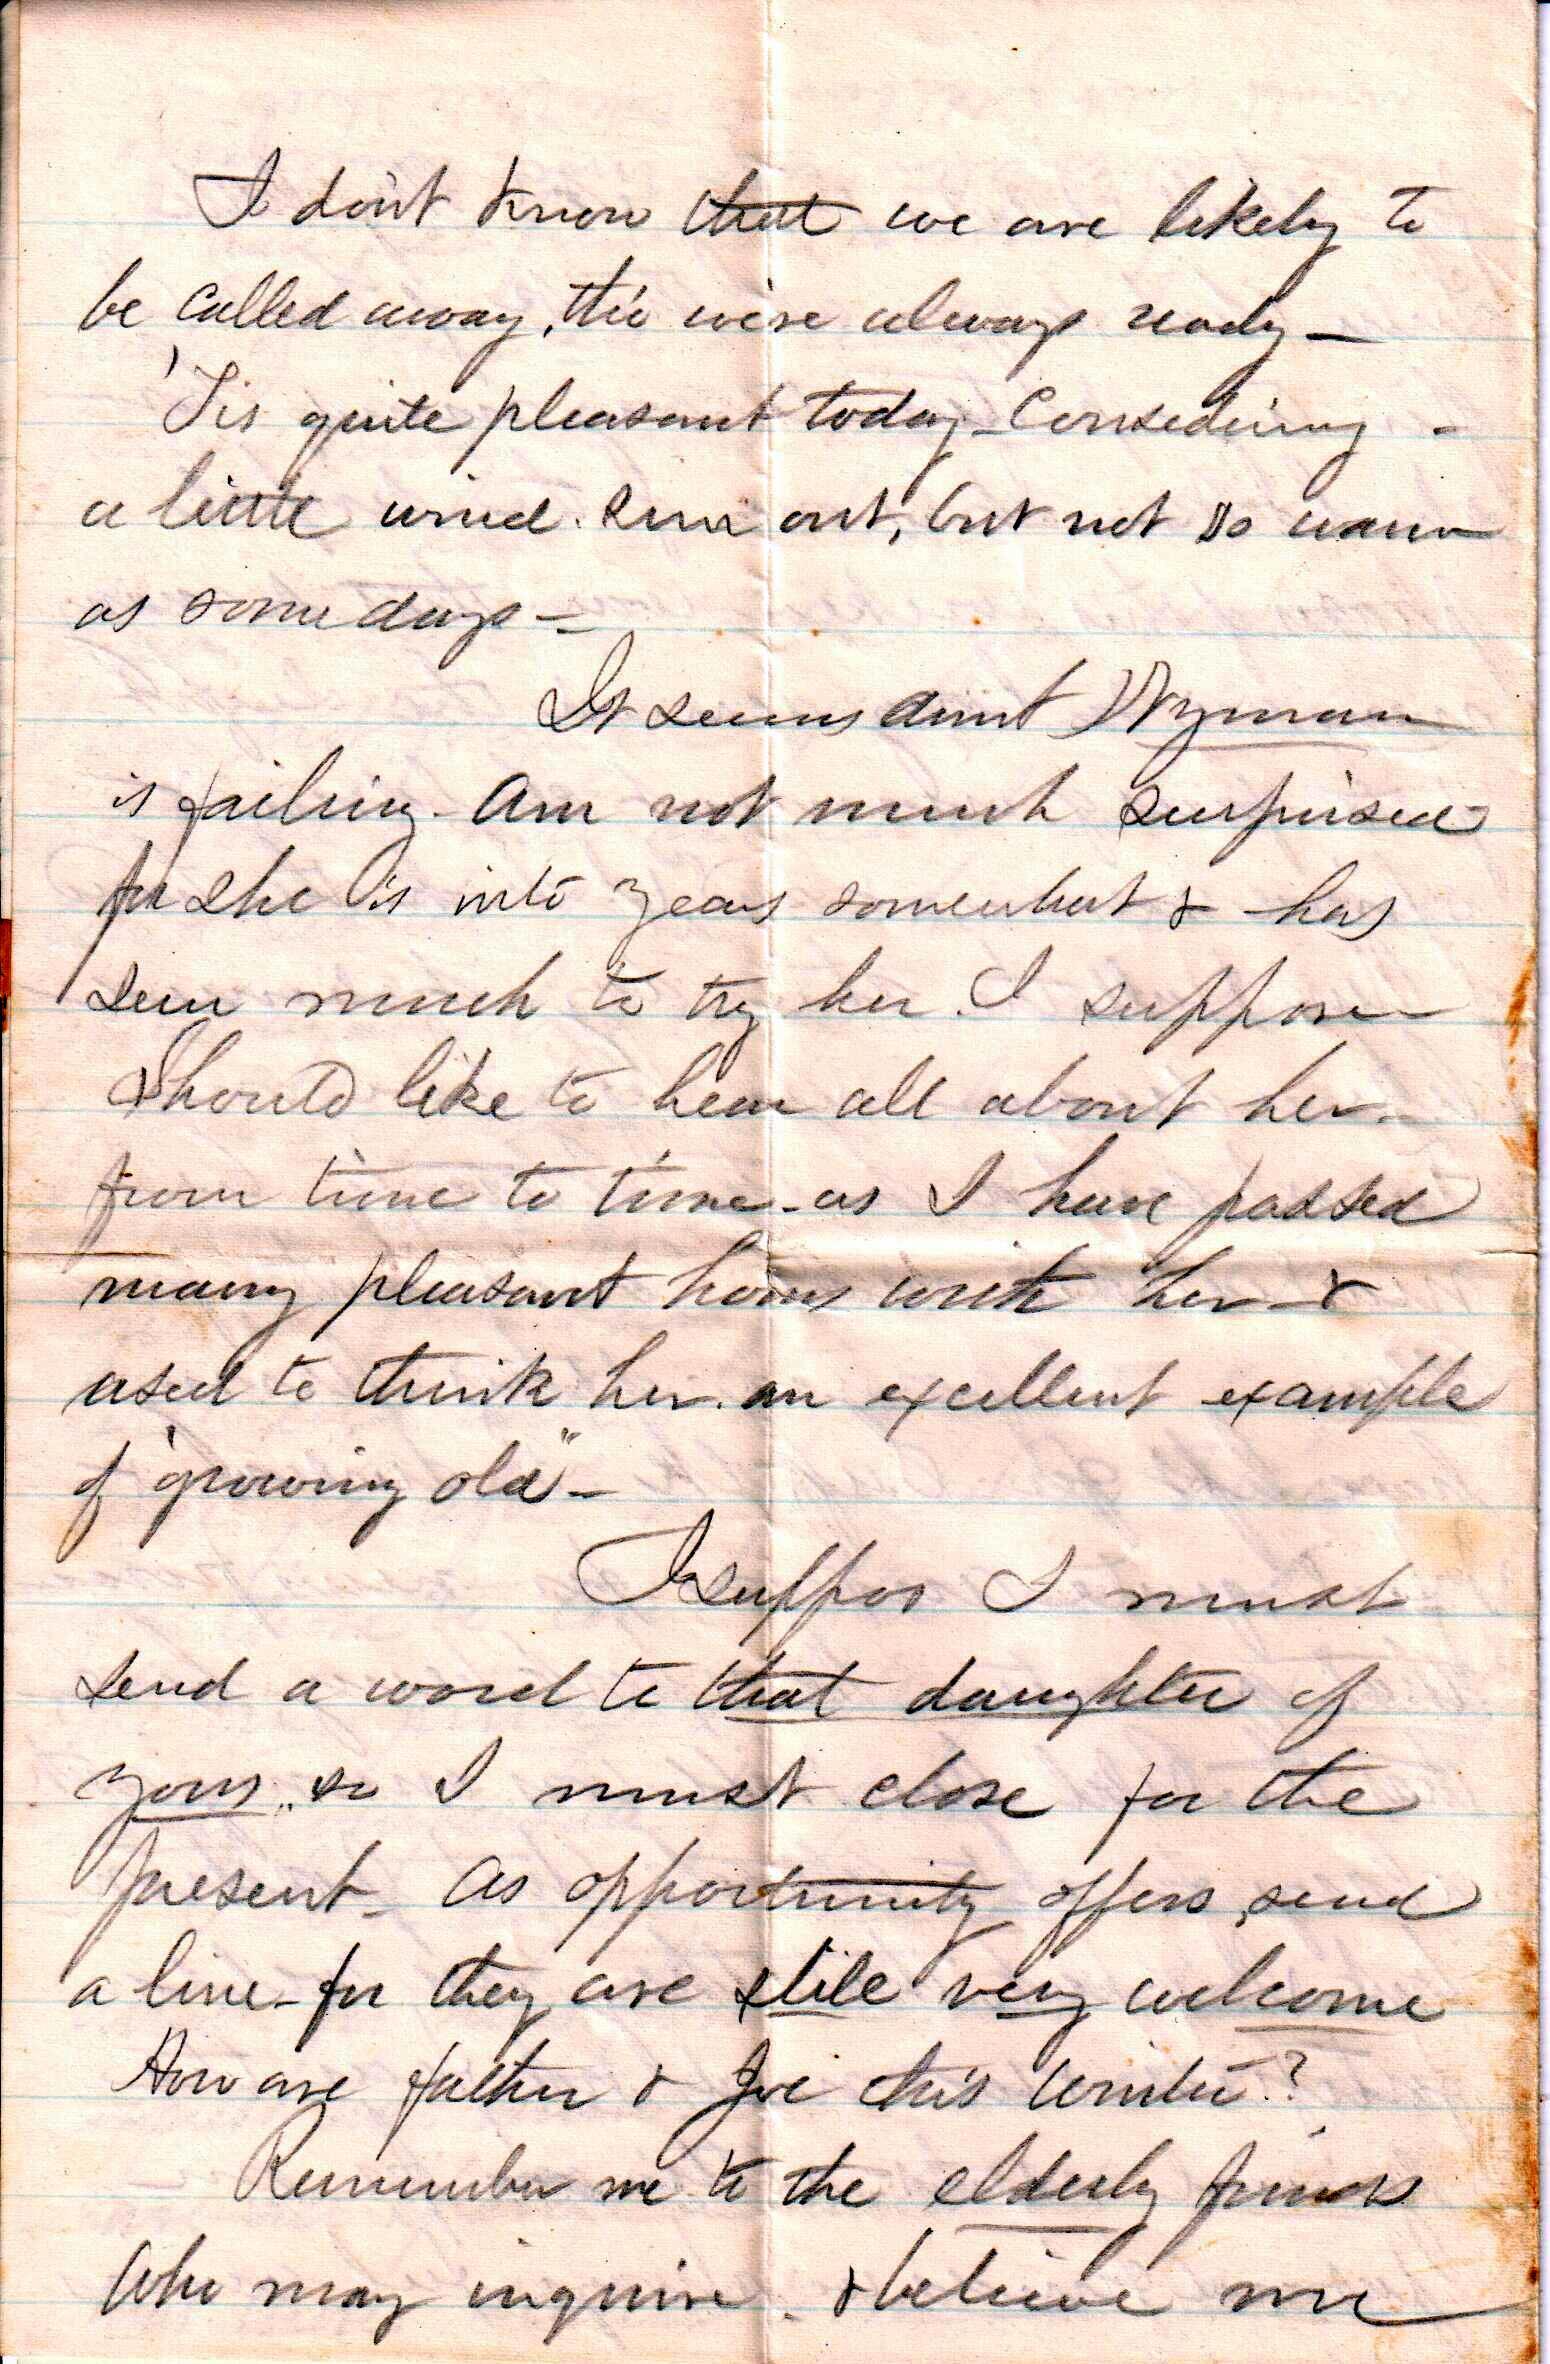 I don't know that we are likely to
be called away, tho' we're always ready—
'Tis quite pleasant today—Considering -
a little wind. Sun out, but not so warm
as some days—
It seems Aunt Wyman
is failing. Am not much surprised
for she is into years somewhat & has
seen much to try her. I suppose
Should like to hear all about her—
from time to time—as I have passed
many pleasant hours with her—&
used to think her an excellent example
of "growing old"—
I suppos I must
send a word to that daughter of
yours, so I must close for the
present— As opportunity offers, send
a line—for they are still very welcome
How are father & Joe this Winter?
Remember me to the elderly friends
Who may inquire. & believe me